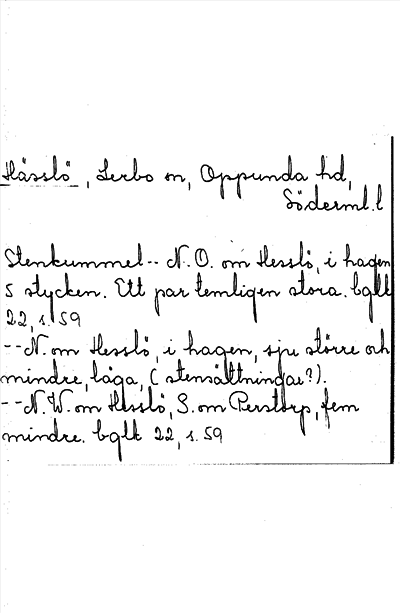 Hässlö, Lerbo sn, Oppunda hd,
Söderml.l
Stenkummel-- N.O. om Hesslö, i hagen
5 stycken. Ett par temligen stora. bglk
22, s. 59
--N. om Hesslö, i hagen, sju större och
mindre, låga, (stensättningar?).
--N.W. om Hesslö, S. om Perstorp, fem
mindre. bglk 22, s. 59